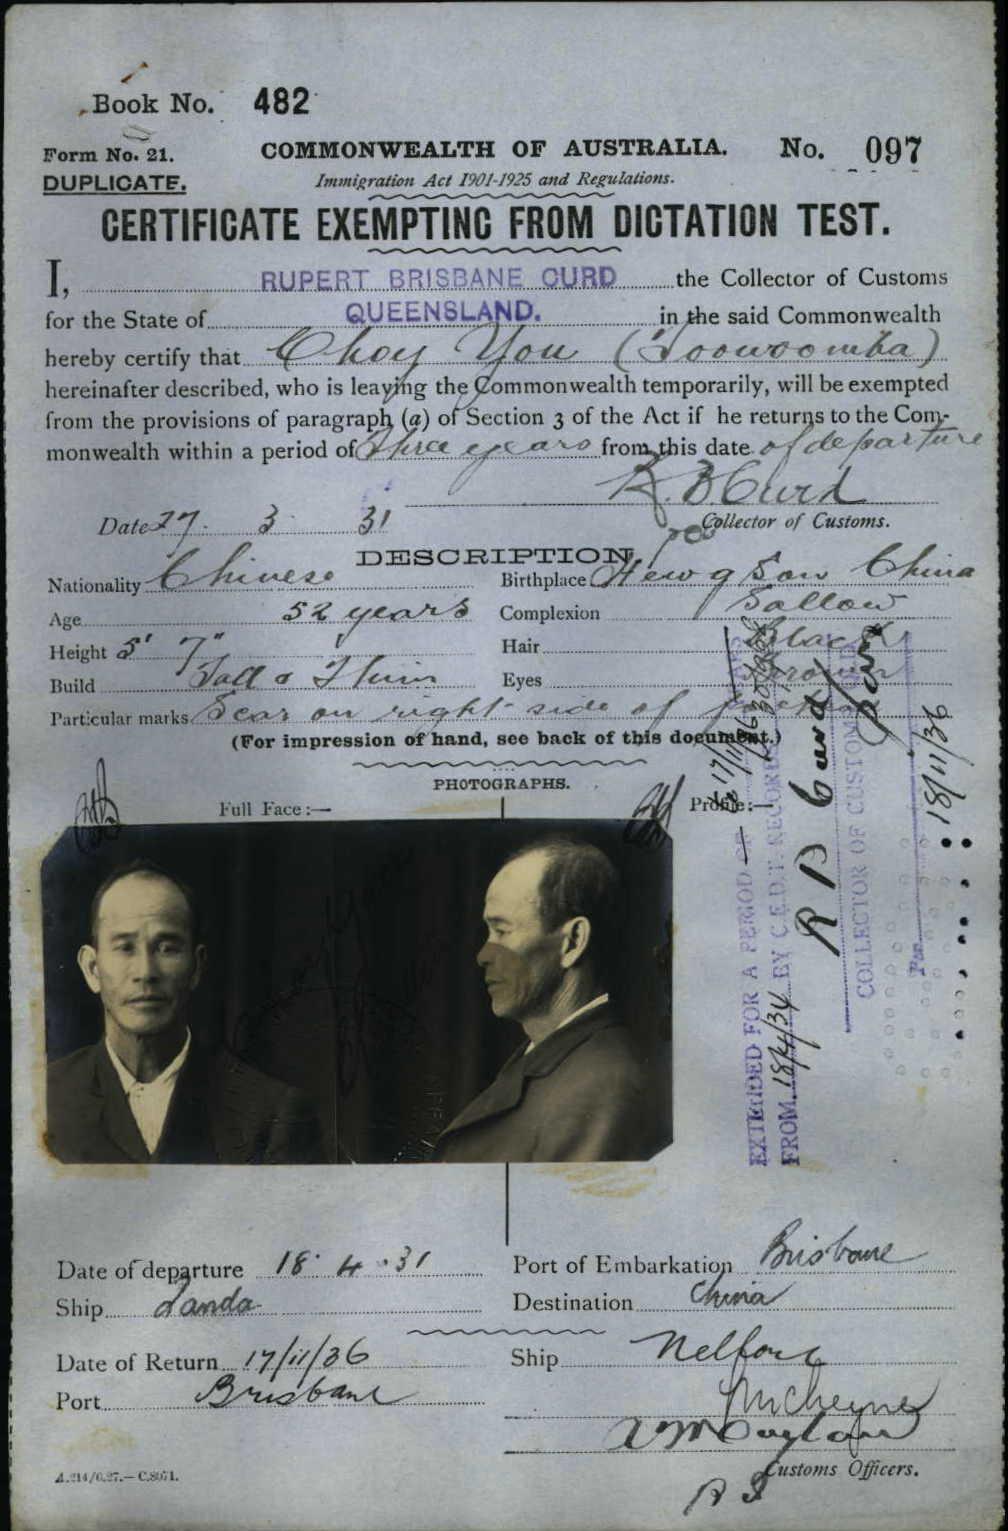 Book No. 482
Form No. 21.
COMMONWEALTH OF AUSTRALIA. No. 097
DUPLICATE.
Immigration Act 1901-1925 and Regulations.
CERTIFICATE EXEMPTING FROM DICTATION TEST.
I, RUPERT BRISBANE CURD the Collector of Customs
for the State of QUEENSLAND. in the said Commonwealth
hereby certify that Choy You (Toowoomba)
hereinafter described, who is leaving the Commonwealth temporarily, will be exempted
from the provisions of paragraph (a) of Section 3 of the Act if he returns to the Com-
monwealth within a period of three years from this date of departure
R. B Curd
Date 27. 3 31 Collector of Customs.
DESCRIPTION.
Nationality Chinese Birthplace China
Age 52 years Complexion Sallow
Height 5' 7" Hair Black
Build Tall & Thin Eyes Brown
Particular marks Scar on right side of
(For impression of hand, see back of this document.)
PHOTOGRAPHS.
Full Face:— Profile:—
EXTENDED FOR A PERIOD OF YEARS
17/11/36
FROM 18/4/34 BY C.E.D.T. RECORDS
R B Curd
COLLECTOR OF CUSTOMS
Per
18/11/36
Date of departure 18. 4. 31 Port of Embarkation Brisbane
Ship Tanda Destination China
Date of Return 17/11/36 Ship Nellore
Port Brisbane
Customs Officers.
A.214/6.27.—C.8071.